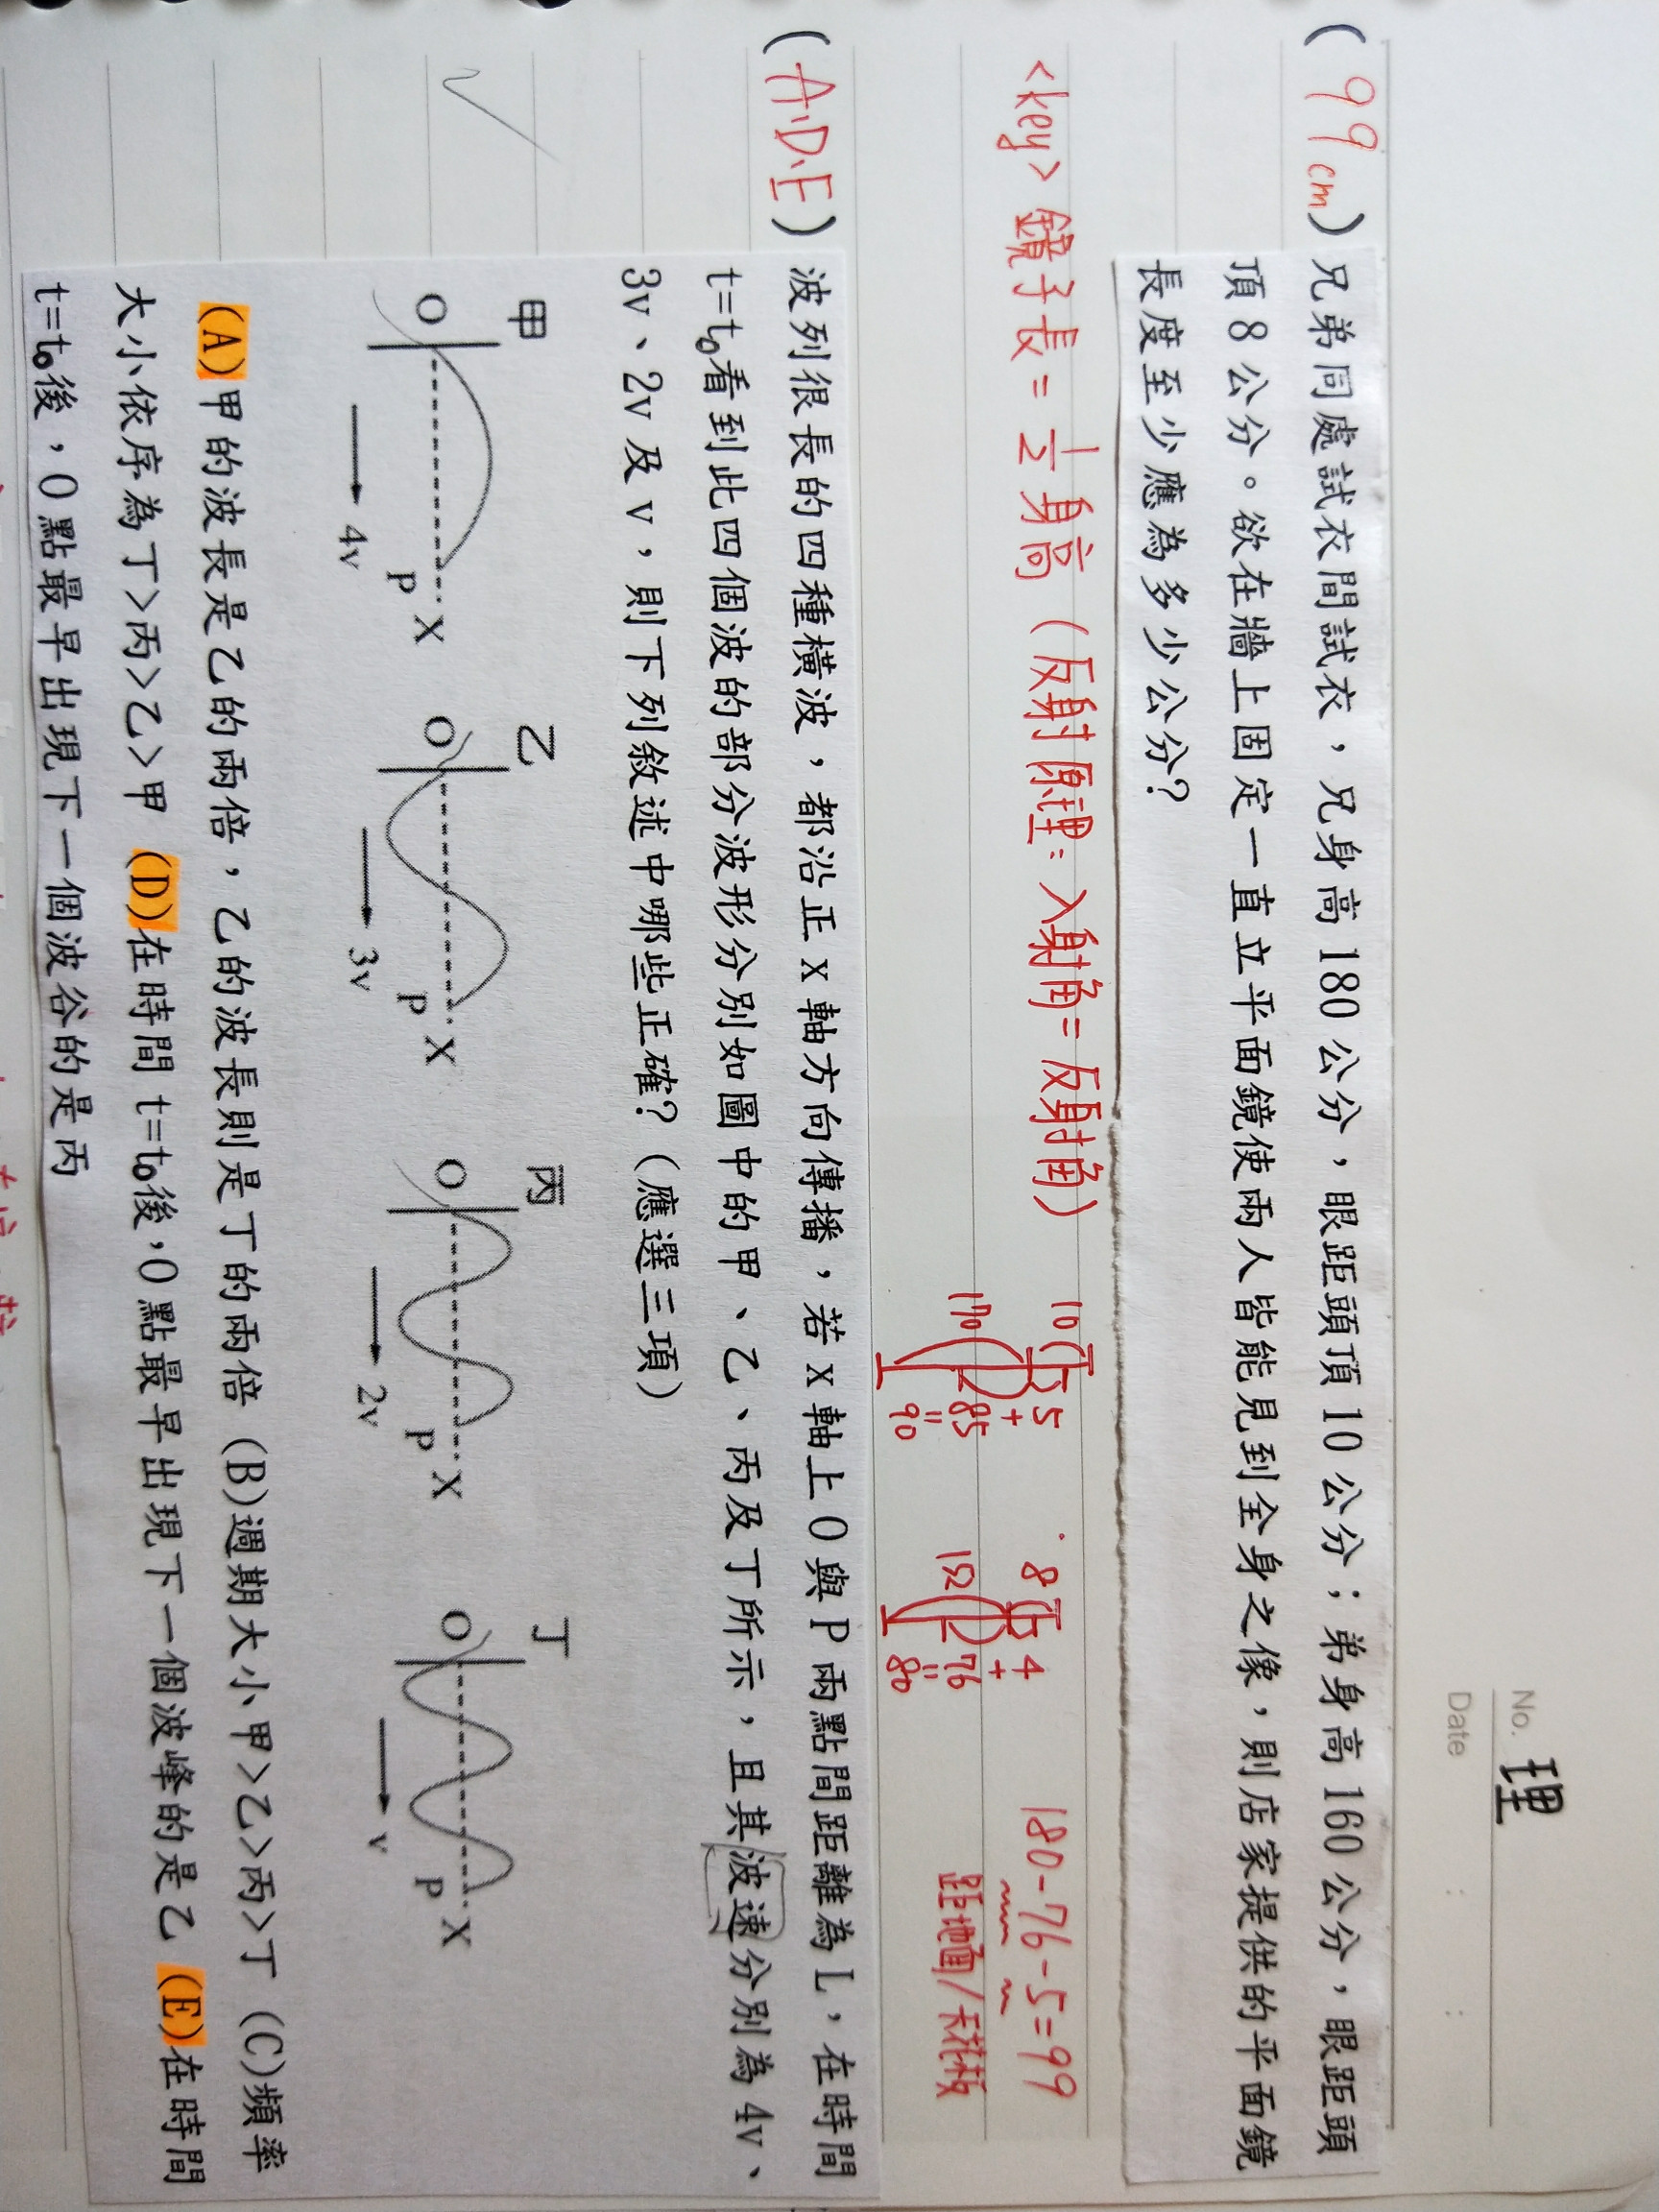 理
No.
Date : :
(99cm) 兄弟同處試衣間試衣，兄身高180公分，眼距頭頂10公分；弟身高160公分，眼距頭
頂8公分。欲在牆上固定一直立平面鏡使兩人皆能見到全身之像，則店家提供的平面鏡
長度至少應為多少公分?
<key> 鏡子長 = 1/2 身高 (反射原理: 入射角 = 反射角)
10 5
+
170 85
=
90
8 4
+
152 76
=
80
180-76-5=99
距地面/天花板
(A、D、E) 波列很長的四種橫波，都沿正x軸方向傳播，若x軸上O與P兩點間距離為L，在時間
t=t₀看到此四個波的部分波形分別如圖中的甲、乙、丙及丁所示，且其波速分別為4v、
3v、2v及v，則下列敘述中哪些正確?(應選三項)
甲 乙 丙 丁
O P X O P X O P X O P X
4v 3v 2v v
(A)甲的波長是乙的兩倍，乙的波長則是丁的兩倍 (B)週期大小甲>乙>丙>丁 (C)頻率
大小依序為丁>丙>乙>甲 (D)在時間t=t₀後，O點最早出現下一個波峰的是乙 (E)在時間
t=t₀後，O點最早出現下一個波谷的是丙